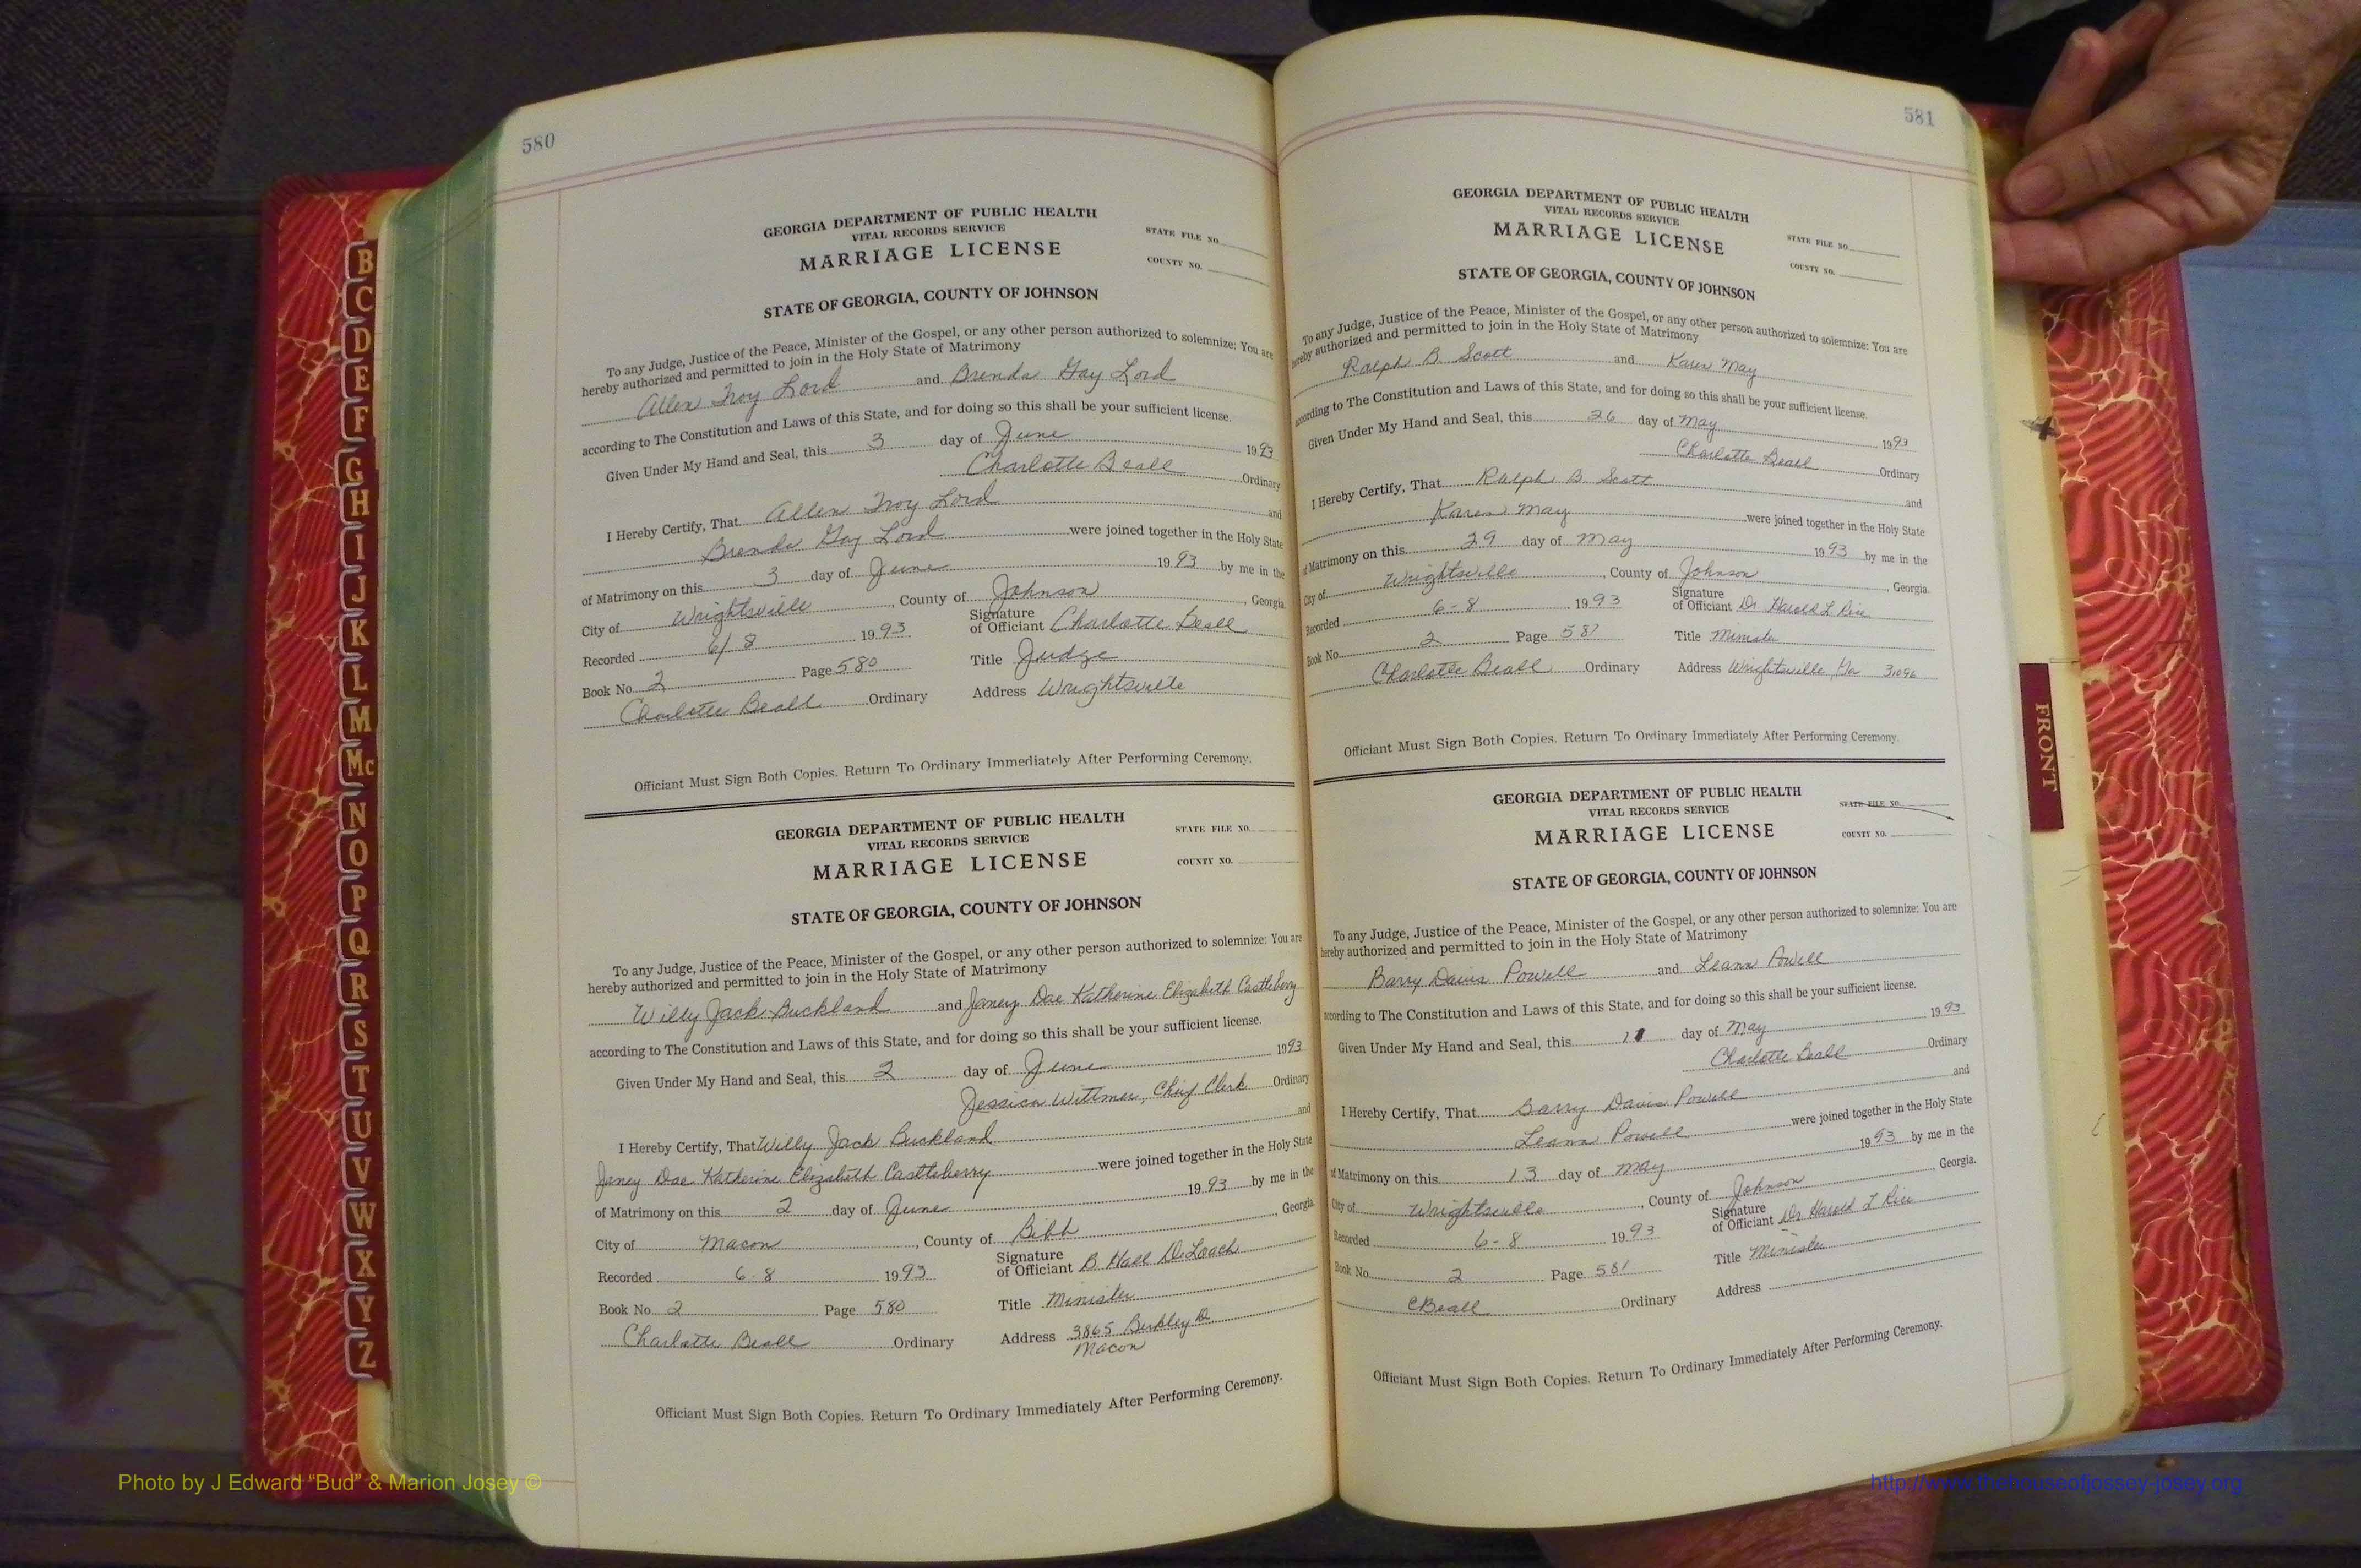 580
GEORGIA DEPARTMENT OF PUBLIC HEALTH
VITAL RECORDS SERVICE
MARRIAGE LICENSE
STATE FILE NO.
COUNTY NO.
STATE OF GEORGIA, COUNTY OF JOHNSON
To any Judge, Justice of the Peace, Minister of the Gospel, or any other person authorized to solemnize: You are
hereby authorized and permitted to join in the Holy State of Matrimony
Allen Troy Lord and Brenda Gay Lord
according to The Constitution and Laws of this State, and for doing so this shall be your sufficient license.
Given Under My Hand and Seal, this 3 day of June 1993
Charlotte Beall Ordinary
I Hereby Certify, That Allen Troy Lord and
Brenda Gay Lord were joined together in the Holy State
of Matrimony on this 3 day of June 1993 by me in the
City of Wrightsville, County of Johnson, Georgia
Recorded 6/8 1993 Signature of Officiant Charlotte Beall
Book No. 2 Page 580 Title Judge
Charlotte Beall Ordinary Address Wrightsville
Officiant Must Sign Both Copies. Return To Ordinary Immediately After Performing Ceremony.
GEORGIA DEPARTMENT OF PUBLIC HEALTH
VITAL RECORDS SERVICE
MARRIAGE LICENSE
STATE FILE NO.
COUNTY NO.
STATE OF GEORGIA, COUNTY OF JOHNSON
To any Judge, Justice of the Peace, Minister of the Gospel, or any other person authorized to solemnize: You are
hereby authorized and permitted to join in the Holy State of Matrimony
Willy Jack Buckland and Janey Dae Katherine Elizabeth Castleberry
according to The Constitution and Laws of this State, and for doing so this shall be your sufficient license.
Given Under My Hand and Seal, this 2 day of June 1993
Jessica Wittmer, Chief Clerk Ordinary
I Hereby Certify, That Willy Jack Buckland and
Janey Dae Katherine Elizabeth Castleberry were joined together in the Holy State
of Matrimony on this 2 day of June 1993 by me in the
City of Macon, County of Bibb, Georgia
Recorded 6-8 1993 Signature of Officiant B. Hall DeLoach
Book No. 2 Page 580 Title Minister
Charlotte Beall Ordinary Address 3865 Berkley Dr
Macon
Officiant Must Sign Both Copies. Return To Ordinary Immediately After Performing Ceremony.
581
GEORGIA DEPARTMENT OF PUBLIC HEALTH
VITAL RECORDS SERVICE
MARRIAGE LICENSE
STATE FILE NO.
COUNTY NO.
STATE OF GEORGIA, COUNTY OF JOHNSON
To any Judge, Justice of the Peace, Minister of the Gospel, or any other person authorized to solemnize: You are
hereby authorized and permitted to join in the Holy State of Matrimony
Ralph B. Scott and Karen May
according to The Constitution and Laws of this State, and for doing so this shall be your sufficient license.
Given Under My Hand and Seal, this 26 day of May 1993
Charlotte Beall Ordinary
I Hereby Certify, That Ralph B Scott and
Karen May were joined together in the Holy State
of Matrimony on this 29 day of May 1993 by me in the
City of Wrightsville, County of Johnson, Georgia.
Recorded 6-8 1993 Signature of Officiant Dr. Harold L Rice
Book No. 2 Page 581 Title Minister
Charlotte Beall Ordinary Address Wrightsville, Ga 31096
Officiant Must Sign Both Copies. Return To Ordinary Immediately After Performing Ceremony.
GEORGIA DEPARTMENT OF PUBLIC HEALTH
VITAL RECORDS SERVICE
MARRIAGE LICENSE
STATE FILE NO.
COUNTY NO.
STATE OF GEORGIA, COUNTY OF JOHNSON
To any Judge, Justice of the Peace, Minister of the Gospel, or any other person authorized to solemnize: You are
hereby authorized and permitted to join in the Holy State of Matrimony
Barry Davis Powell and Leann Powell
according to The Constitution and Laws of this State, and for doing so this shall be your sufficient license.
Given Under My Hand and Seal, this 11 day of May 1993
Charlotte Beall Ordinary
I Hereby Certify, That Barry Davis Powell and
Leann Powell were joined together in the Holy State
of Matrimony on this 13 day of May 1993 by me in the
City of Wrightsville, County of Johnson, Georgia.
Recorded 6-8 1993 Signature of Officiant Dr. Harold L Rice
Book No. 2 Page 581 Title Minister
CBeall Ordinary Address
Officiant Must Sign Both Copies. Return To Ordinary Immediately After Performing Ceremony.
B
C
D
E
F
G
H
I
J
K
L
M
Mc
N
O
P
Q
R
S
T
U
V
W
X
Y
Z
FRONT
Photo by J Edward “Bud” & Marion Josey ©
http://www.thehouseofjossey-josey.org